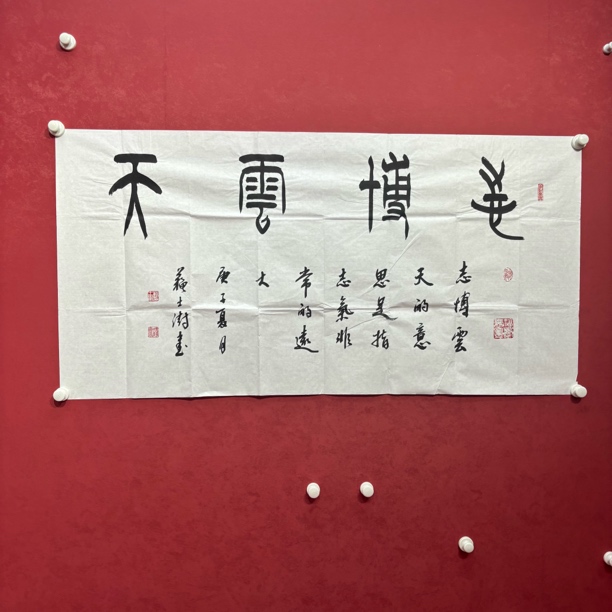 志博雲天
志博雲
天的意
思是指
志氣非
常的遠
大
庚子夏月
蘇士澍書